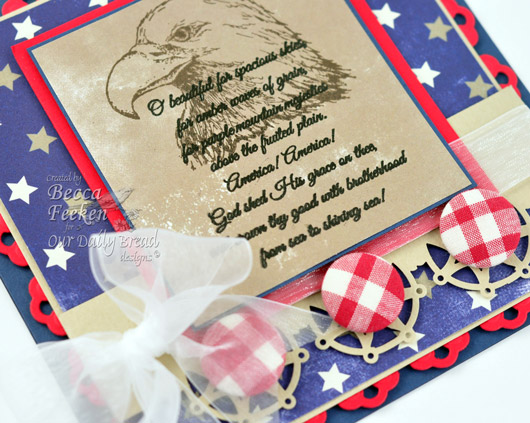 O beautiful for spacious skies,
for amber waves of grain,
for purple mountain majesties
above the fruited plain.
America! America!
God shed His grace on thee,
crown thy good with brotherhood
from sea to shining sea!
Created by
Becca
Feeken
for
Our Daily Bread
designs©